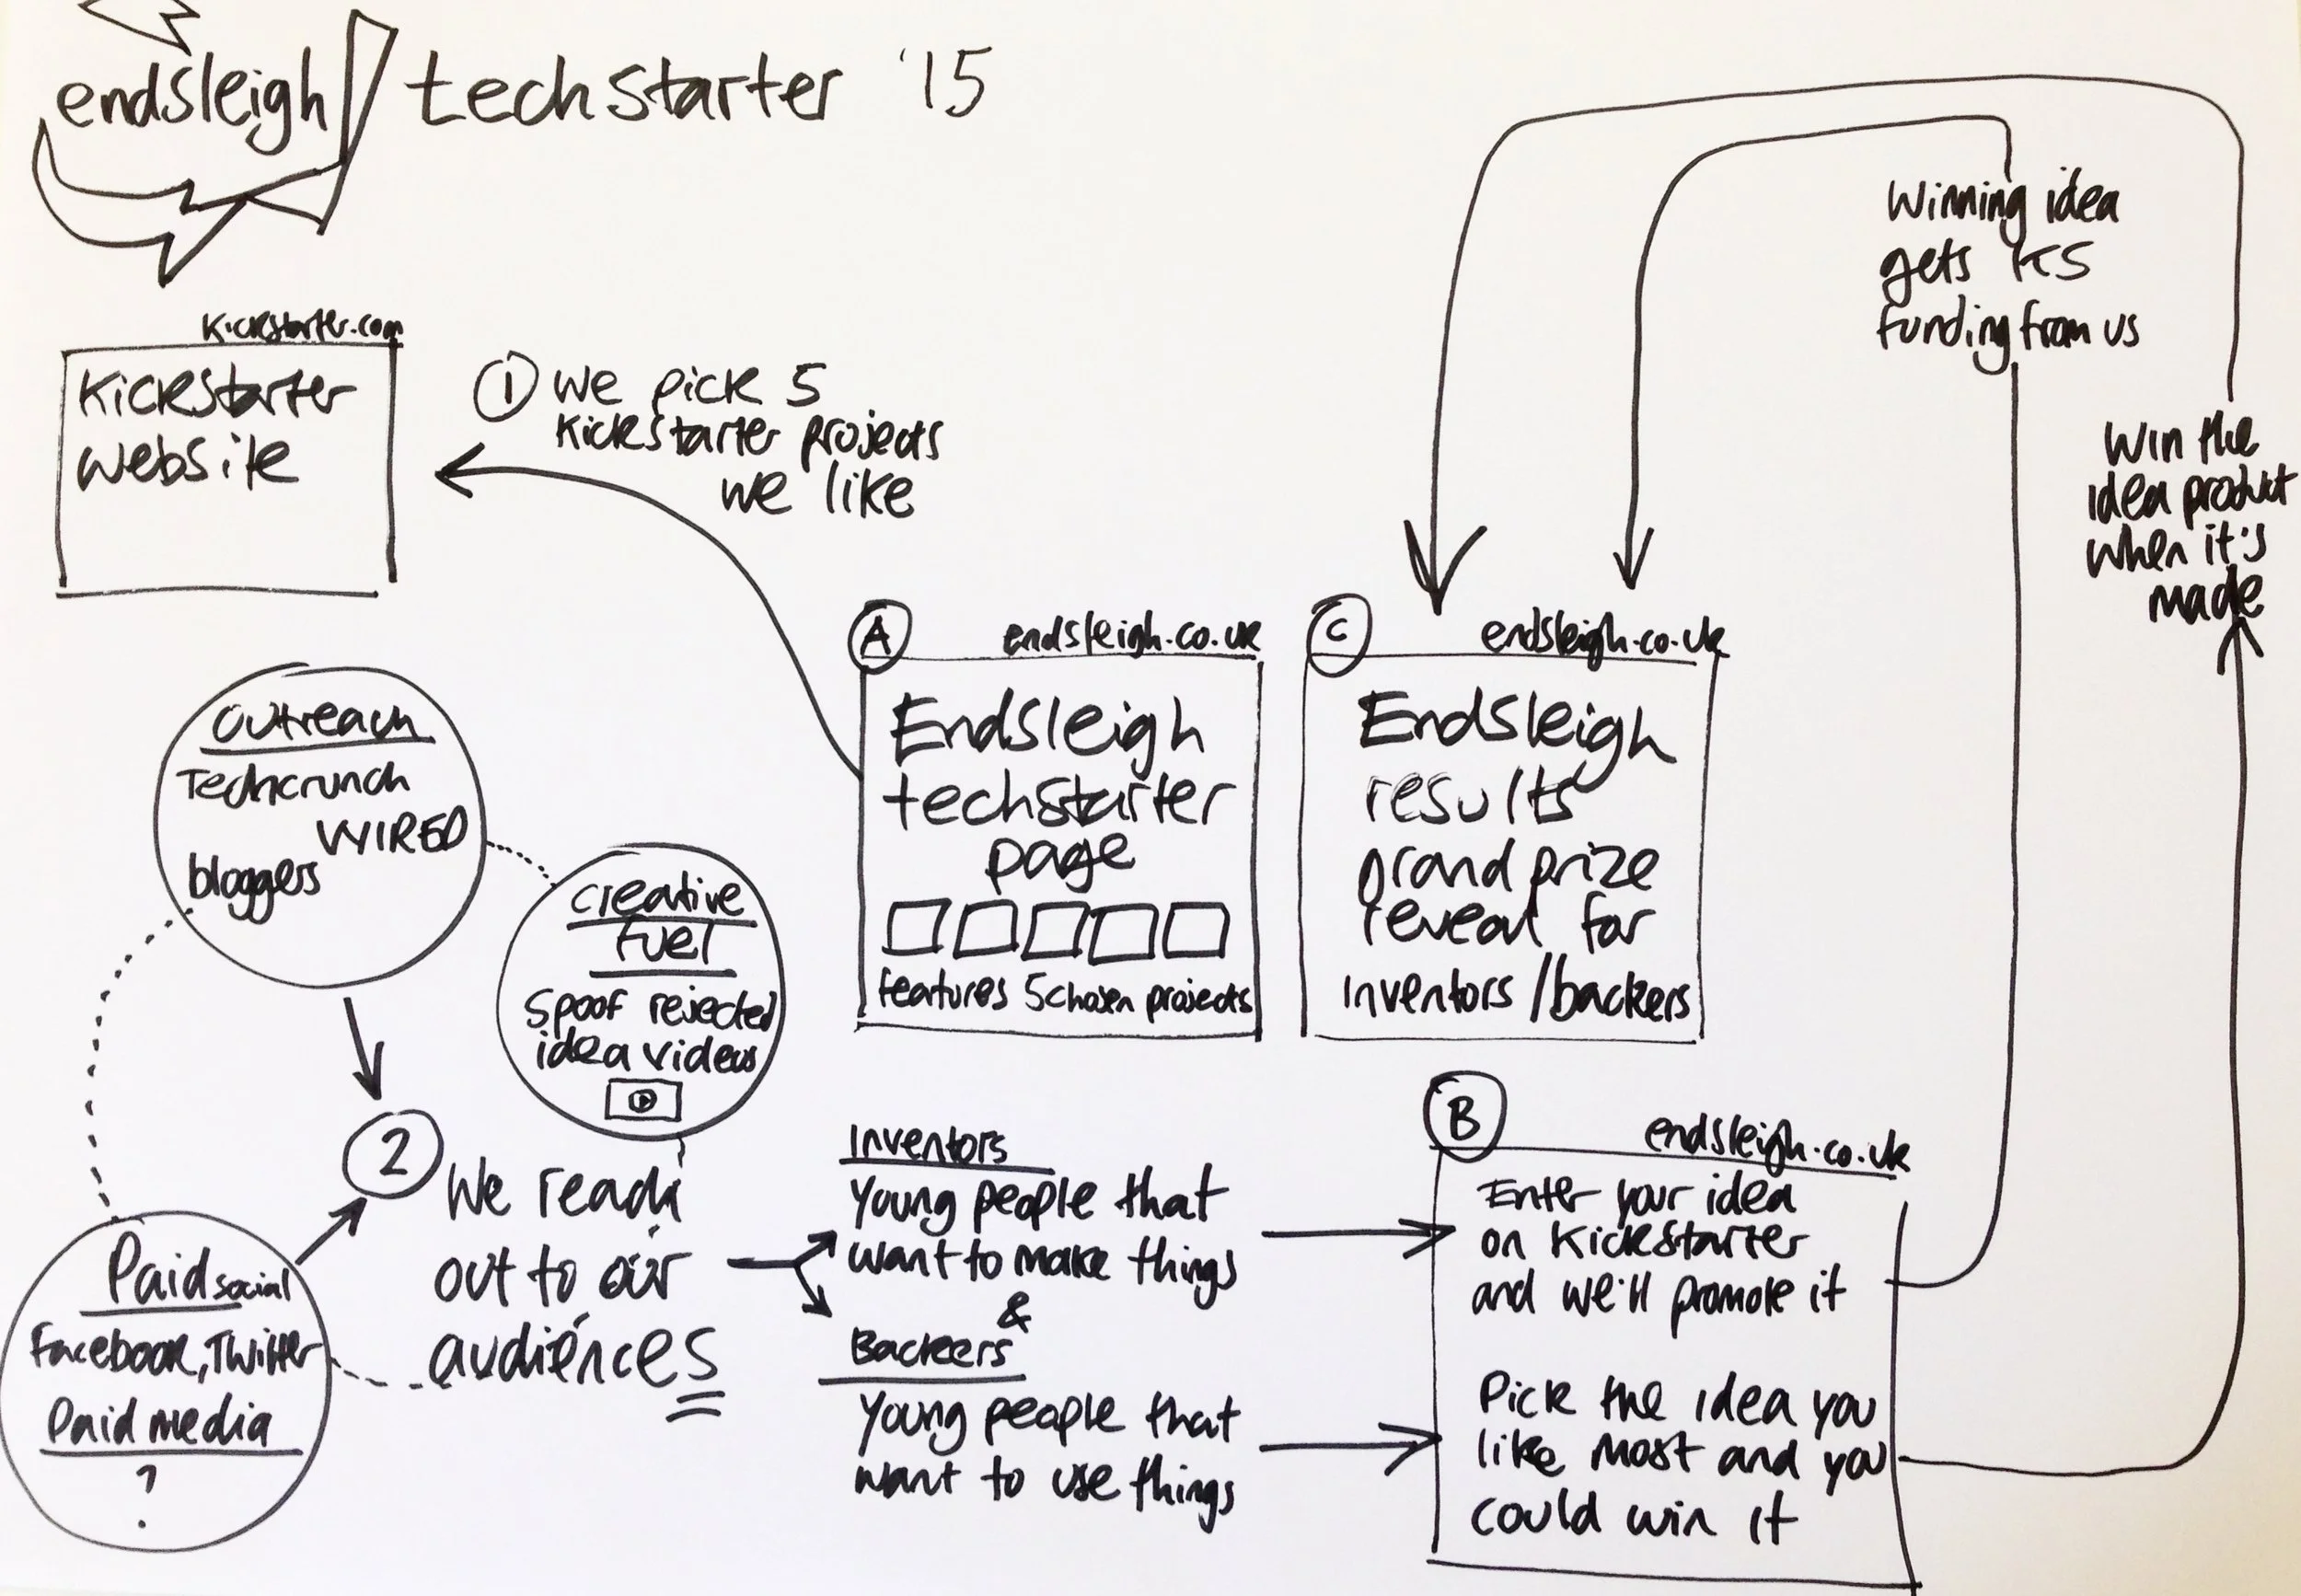 endsleigh techstarter '15
Kickstarter.com
Kickstarter
website
1 We pick 5
Kickstarter projects
we like
Winning idea
gets KS
funding from us
Win the
idea product
when it's
made
A endsleigh.co.uk
Endsleigh
techstarter
page
features 5 chosen projects
C endsleigh.co.uk
Endsleigh
results
grand prize
reveal for
inventors/backers
Outreach
Techcrunch
WIRED
bloggers
creative
fuel
spoof rejected
idea videos
2
We reach
out to our
audiences
Paid social
Facebook, Twitter
Paid media
?
Inventors
Young people that
want to make things
&
Backers
Young people that
want to use things
B endsleigh.co.uk
Enter your idea
on Kickstarter
and we'll promote it
Pick the idea you
like most and you
could win it